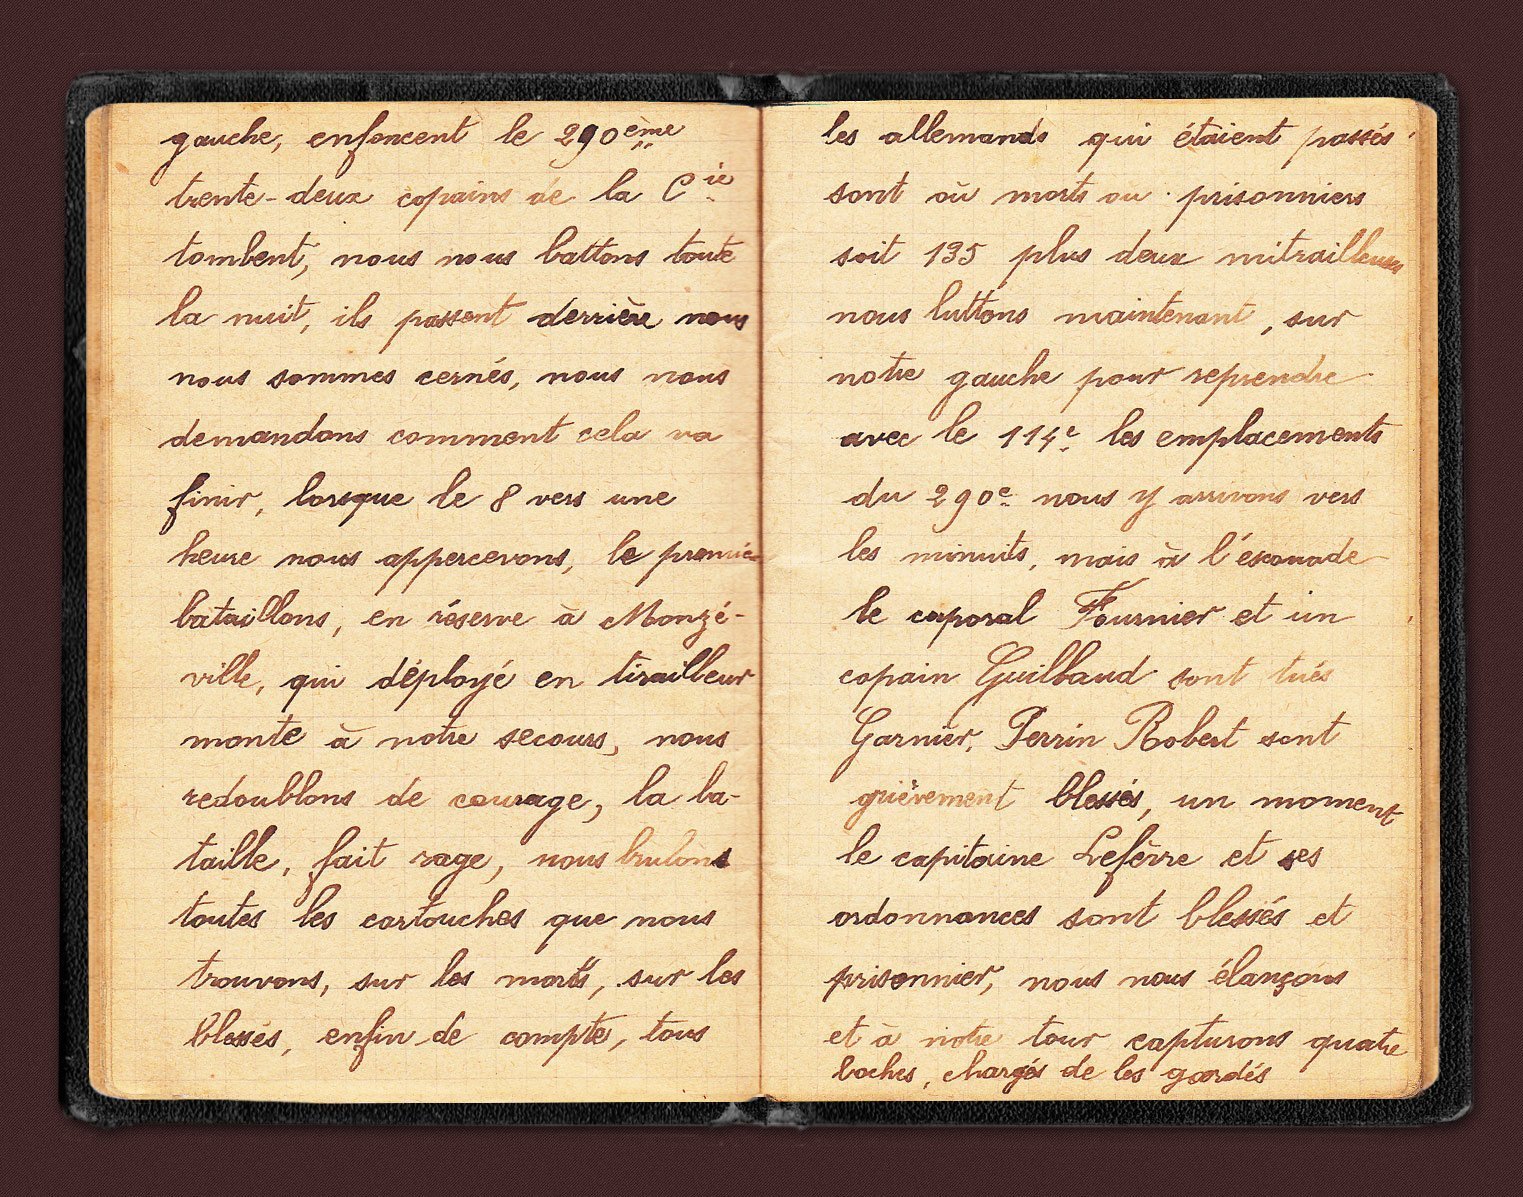 gauche, enfoncent le 290ème
trente-deux copains de la Cie
tombent, nous nous battons toute
la nuit, ils passent derrière nous
nous sommes cernés, nous nous
demandons comment cela va
finir, lorsque le 8 vers une
heure nous appercevons, le premier
bataillons, en réserve à Monzé-
ville, qui déployé en tirailleur
monte à notre secours, nous
redoublons de courage, la ba-
taille, fait rage, nous brulons
toutes les cartouches que nous
trouvons, sur les morts, sur les
blessés, enfin de compte, tous
les allemands qui étaient passés
sont où morts ou prisonniers
soit 195 plus deux mitrailleuses
nous luttons maintenant, sur
notre gauche pour reprendre
avec le 114e les emplacements
du 290e nous y arrivons vers
les minuits, mais à l'escouade
le caporal Fournier et un
copain Guilbaud sont tués
Garnier, Perrin Robert sont
grièvement blessés, un moment
le capitaine Lefèvre et ses
ordonnances sont blessés et
prisonnier, nous nous élançons
et à notre tour capturons quatre
boches, chargés de les gardés